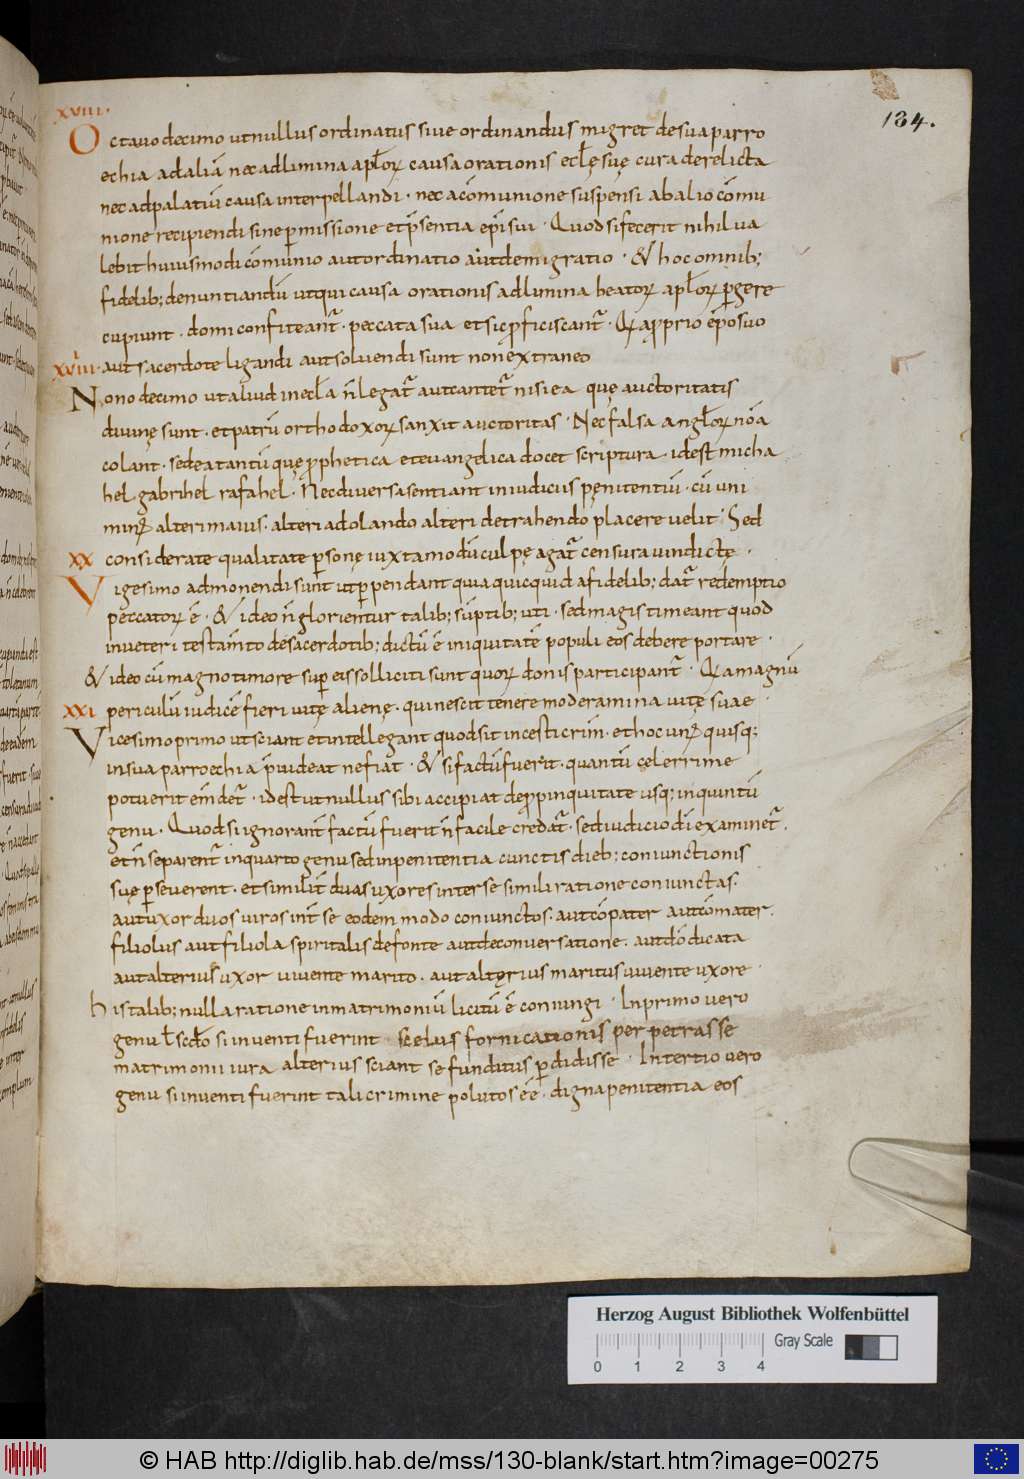 134.
XVIII.
Octauo decimo ut nullus ordinatus siue ordinandus migret de sua parro
echia ad aliā nec ad limina ap̄lorꝝ causa orationis ecl̄ę suę cura derelicta
nec ad palatiū causa interpellandi · nec a cōmunione suspensi ab alio cōmu
nione recipiendi sine ꝑmissione et p̄sentia ep̄i sui · Quod si fecerit nihil ua
lebit huiusmodi cōmunio aut ordinatio aut demigratio · & hoc omnib;
fidelib; denuntiandū ut qui causa orationis ad limina beatorꝝ ap̄lorꝝ ꝑgere
cupiunt · domi confiteant̄ · peccata sua et sic ꝓficiscant̄ · Q̄a a ꝓprio ep̄o suo
XVIIII. aut sacerdote ligandi aut soluendi sunt non extraneo
Nono decimo ut aliud in ecl̄a n̄ legat̄ aut cantet̄ nisi ea quę auctoritatis
diuinę sunt · et patrū orthodoxorꝝ sanxit auctoritas · Nec falsa anglorꝝ nōa
colant · sed ea tantū quę ꝓphetica et euangelica docet scriptura · id est micha
hel · gabrihel rafahel · Nec diuersa sentiant in iudiciis pęnitentiū · cū uni
minꝰ alteri maius · alteri adolando alteri detrahendo placere uelit · Sed
XX considerate qualitate ꝑsonę iuxta modū culpę agat̄ censura uindictę ·
Vigesimo admonendi sunt ut ꝑpendant quia quicquid a fidelib; dat̄ redemptio
peccatorꝝ ē · & ideo n̄ glorientur talib; sūptib; uti · sed magis timeant quod
in ueteri testam̄to de sacerdotib; dictū ē iniquitatē populi eos debere portare ·
& ideo cū magno timore sup eis solliciti sunt quorꝝ donis participant̄ · Q̄a magnū
XXI periculū iudicē fieri uitę alienę · qui nescit tenere moderamina uitę suae
Vicesimo primo ut sciant et intellegant quod sit incesti crim̄ · et hoc unꝰ quisq;
in sua parroechia p̄uideat ne fiat · & si factū fuerit · quantū celerrime
potuerit em̄det̄ · id est ut nullus sibi accipiat de ꝓpinquitate usq; in quintū
genu · Quod si ignorant̄ factū fuerit n̄ facile credat̄ · sed iudicio dī examinet̄ ·
et n̄ separent̄ in quarto genu sed in penitentia cunctis dieb; coniunctionis
suę ꝑseuerent · et similit̄ duas uxores inter se simili ratione coniunctas ·
aut uxor duos uiros int̄ se eodem modo coniunctos · aut cōpater aut cōmater ·
filiolus aut filiola spiritalis de fonte aut de conuersatione · aut dō dicata
aut alterius uxor uiuente marito · aut altęrius maritus uiuente uxore ·
his talib; nulla ratione in matrimoniū licitū ē coniungi · In primo uero
genu ł sc̄do si inuenti fuerint · scelus fornicationis perpetrasse
matrimonii iura alterius sciant se funditus ꝑdidisse · In tertio uero
genu si inuenti fuerint tali crimine polutos eē · digna penitentia eos
Herzog August Bibliothek Wolfenbüttel
Gray Scale
0 1 2 3 4
© HAB http://diglib.hab.de/mss/130-blank/start.htm?image=00275